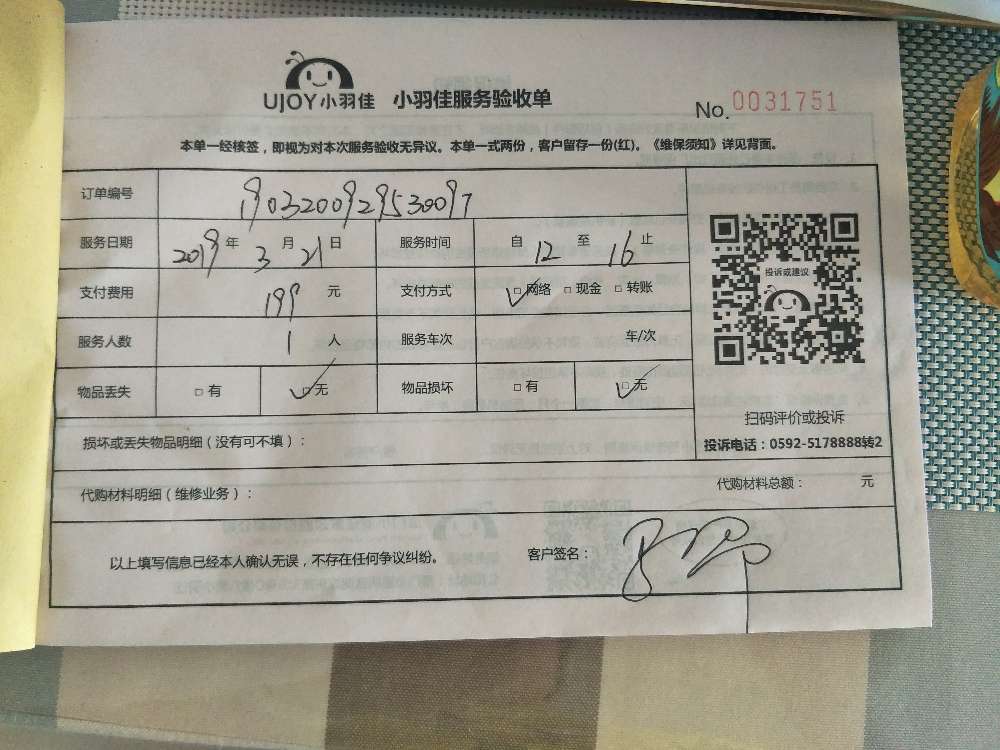 UJOY小羽佳 小羽佳服务验收单 No. 0031751
本单一经核签，即视为对本次服务验收无异议。本单一式两份，客户留存一份(红)。《维保须知》详见背面。
订单编号 1903200929530097
服务日期 2019年3月21日 服务时间 自12至16止
支付费用 199元 支付方式 ☑网络 □现金 □转账
服务人数 1人 服务车次 车/次
物品丢失 □有 ☑无 物品损坏 □有 ☑无
投诉或建议
扫码评价或投诉
投诉电话：0592-5178888转2
损坏或丢失物品明细（没有可不填）：
代购材料明细（维修业务）： 代购材料总额： 元
以上填写信息已经本人确认无误，不存在任何争议纠纷。 客户签名：